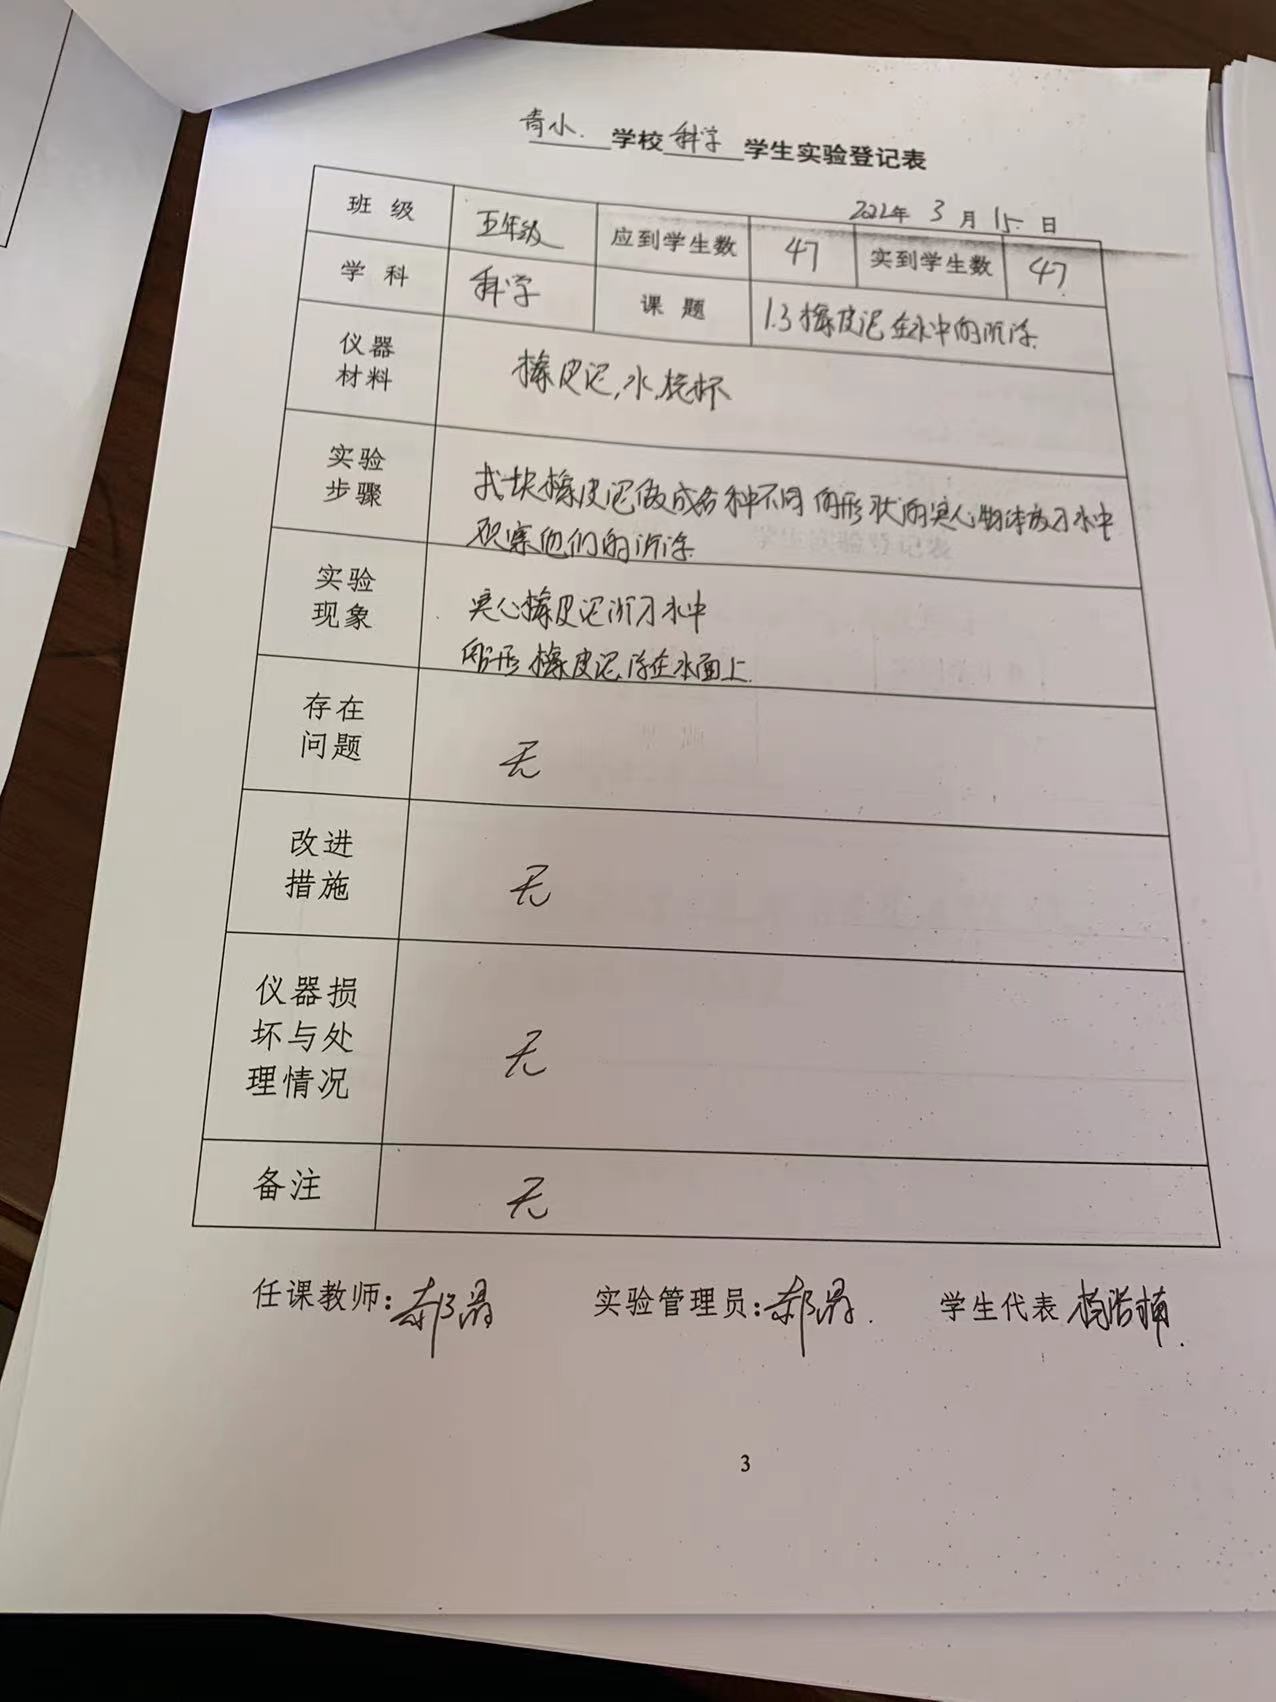 青小. 学校 科学 学生实验登记表
2022年 3 月 15. 日
班 级 五年级 应到学生数 47 实到学生数 47.
学 科 科学 课 题 1.3橡皮泥在水中的沉浮.
仪器
材料
橡皮泥,水,烧杯
实验
步骤
找块橡皮泥做成各种不同的形状的实心物体放入水中
观察他们的沉浮.
实验
现象
实心橡皮泥沉入水中
船形橡皮泥浮在水面上.
存在
问题
无
改进
措施
无
仪器损
坏与处
理情况
无
备注 无
任课教师: 郝晶 实验管理员: 郝晶. 学生代表 杨浩楠.
3